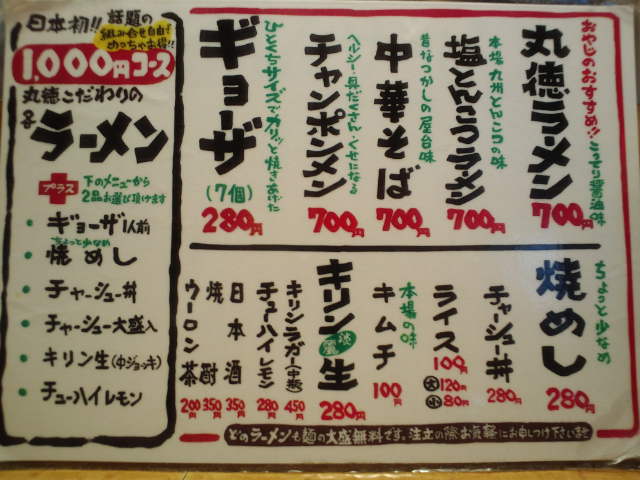 日本初!! 話題の
組み合せ自由で
めっちゃお得!!
1,000円コース
丸徳こだわりの
各ラーメン
プラス
下のメニューから
2品お選び頂けます
・ギョーザ1人前
ちょっと少なめ
・焼めし
・チャーシュー丼
・チャーシュー大盛入
・キリン生(中ジョッキ)
・チューハイレモン
おやじのおすすめ!!こってり醤油味
丸徳ラーメン
700円
本場九州とんこつの味
塩とんこつラーメン
700円
昔なつかしの屋台味
中華そば
700円
ヘルシー具だくさんくせになる
チャンポンメン
700円
ひとくちサイズでカリッと焼きあげた
ギョーザ
(7個)
280円
ちょっと少なめ
焼めし
280円
チャーシュー丼
280円
ライス
100円
大120円
小80円
本場の味
キムチ
100円
キリン淡麗生
280円
キリンラガー(中瓶)
450円
チューハイレモン
280円
日本酒
350円
焼酎
350円
ウーロン茶
200円
どのラーメンも麺の大盛無料です。注文の際お気軽にお申しつけ下さい